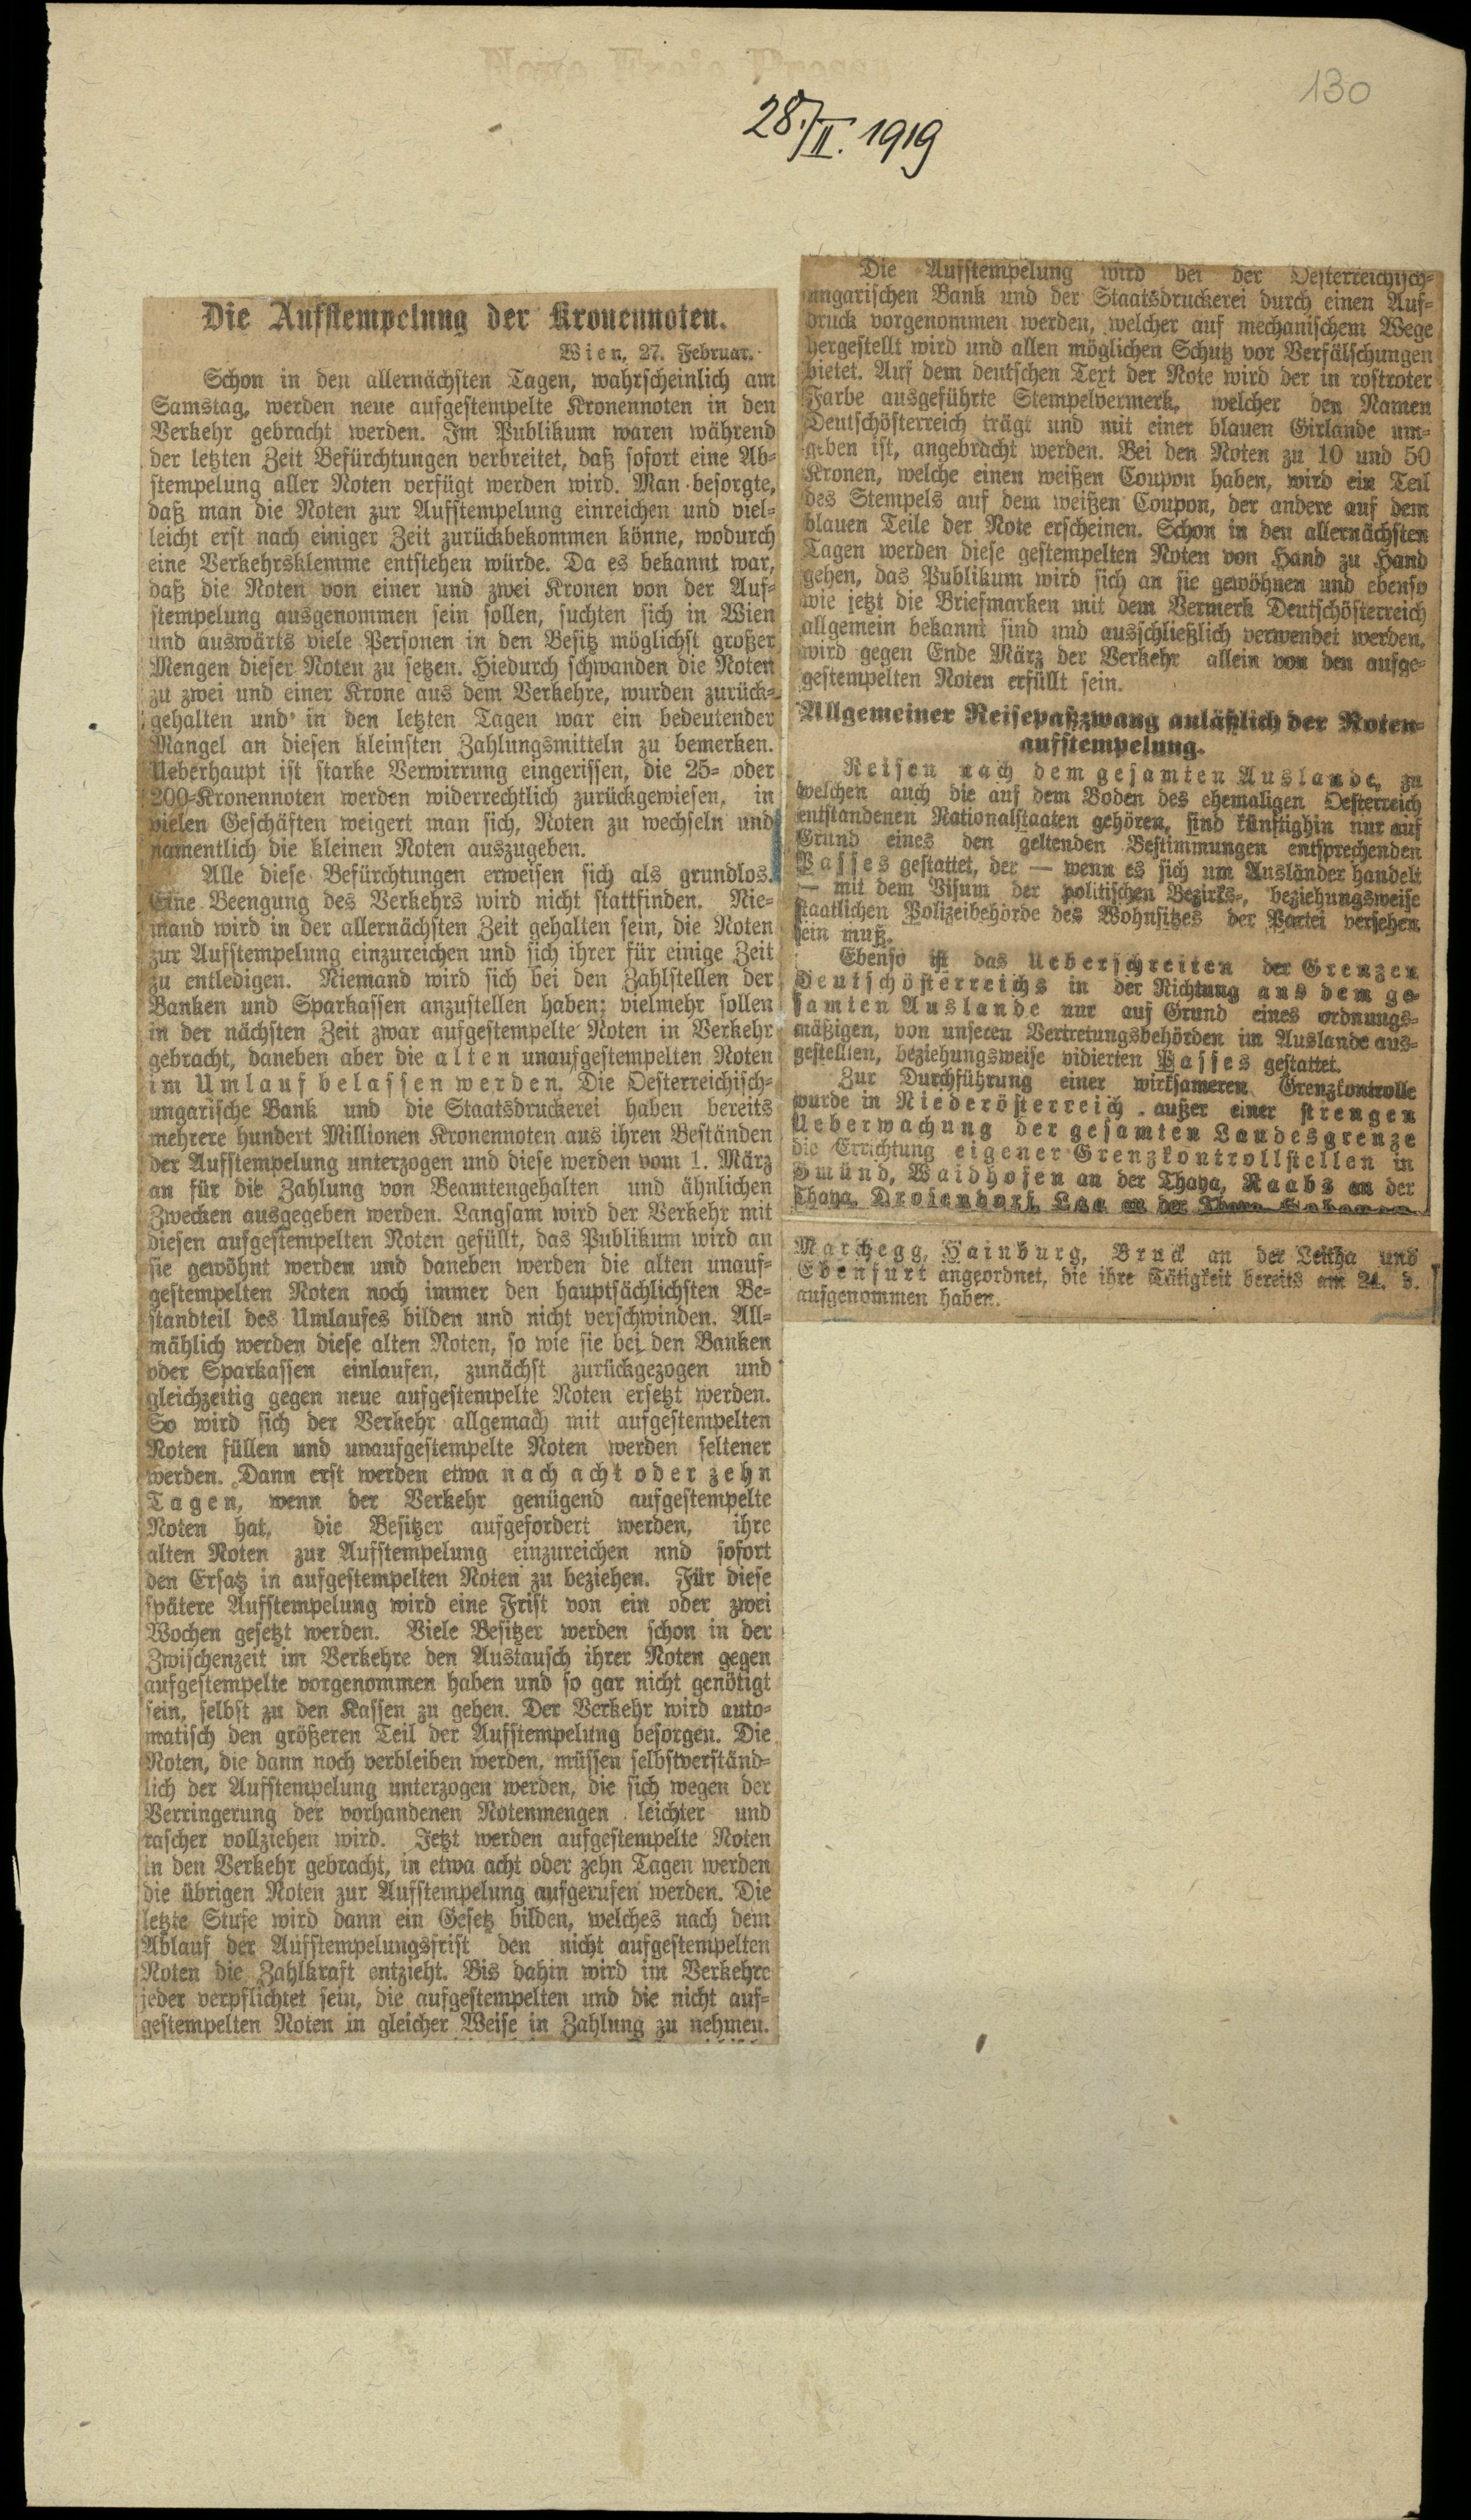 Neue Freie Presse
130
28./II. 1919
Die Aufstempelung der Kronennoten.
Wien, 27. Februar.
Schon in den allernächsten Tagen, wahrscheinlich am
Samstag, werden neue aufgestempelte Kronennoten in den
Verkehr gebracht werden. Im Publikum waren während
der letzten Zeit Befürchtungen verbreitet, daß sofort eine Ab-
stempelung aller Noten verfügt werden wird. Man besorgte,
daß man die Noten zur Aufstempelung einreichen und viel-
leicht erst nach einiger Zeit zurückbekommen könne, wodurch
eine Verkehrsklemme entstehen würde. Da es bekannt war,
daß die Noten von einer und zwei Kronen von der Auf-
stempelung ausgenommen sein sollen, suchten sich in Wien
und auswärts viele Personen in den Besitz möglichst großer
Mengen dieser Noten zu setzen. Hiedurch schwanden die Noten
zu zwei und einer Krone aus dem Verkehre, wurden zurück-
gehalten und in den letzten Tagen war ein bedeutender
Mangel an diesen kleinsten Zahlungsmitteln zu bemerken.
Ueberhaupt ist starke Verwirrung eingerissen, die 25- oder
200-Kronennoten werden widerrechtlich zurückgewiesen, in
vielen Geschäften weigert man sich, Noten zu wechseln und
namentlich die kleinen Noten auszugeben.
Alle diese Befürchtungen erweisen sich als grundlos.
Eine Beengung des Verkehrs wird nicht stattfinden. Nie-
mand wird in der allernächsten Zeit gehalten sein, die Noten
zur Aufstempelung einzureichen und sich ihrer für einige Zeit
zu entledigen. Niemand wird sich bei den Zahlstellen der
Banken und Sparkassen anzustellen haben; vielmehr sollen
in der nächsten Zeit zwar aufgestempelte Noten in Verkehr
gebracht, daneben aber die alten unaufgestempelten Noten
im Umlauf belassen werden. Die Oesterreichisch-
ungarische Bank und die Staatsdruckerei haben bereits
mehrere hundert Millionen Kronennoten aus ihren Beständen
der Aufstempelung unterzogen und diese werden vom 1. März
an für die Zahlung von Beamtengehalten und ähnlichen
Zwecken ausgegeben werden. Langsam wird der Verkehr mit
diesen aufgestempelten Noten gefüllt, das Publikum wird an
sie gewöhnt werden und daneben werden die alten unauf-
gestempelten Noten noch immer den hauptsächlichsten Be-
standteil des Umlaufes bilden und nicht verschwinden. All-
mählich werden diese alten Noten, so wie sie bei den Banken
oder Sparkassen einlaufen, zunächst zurückgezogen und
gleichzeitig gegen neue aufgestempelte Noten ersetzt werden.
So wird sich der Verkehr allgemach mit aufgestempelten
Noten füllen und unaufgestempelte Noten werden seltener
werden. Dann erst werden etwa nach acht oder zehn
Tagen, wenn der Verkehr genügend aufgestempelte
Noten hat, die Besitzer aufgefordert werden, ihre
alten Noten zur Aufstempelung einzureichen und sofort
den Ersatz in aufgestempelten Noten zu beziehen. Für diese
spätere Aufstempelung wird eine Frist von ein oder zwei
Wochen gesetzt werden. Viele Besitzer werden schon in der
Zwischenzeit im Verkehre den Austausch ihrer Noten gegen
aufgestempelte vorgenommen haben und so gar nicht genötigt
sein, selbst zu den Kassen zu gehen. Der Verkehr wird auto-
matisch den größeren Teil der Aufstempelung besorgen. Die
Noten, die dann noch verbleiben werden, müssen selbstverständ-
lich der Aufstempelung unterzogen werden, die sich wegen der
Verringerung der vorhandenen Notenmengen leichter und
rascher vollziehen wird. Jetzt werden aufgestempelte Noten
in den Verkehr gebracht, in etwa acht oder zehn Tagen werden
die übrigen Noten zur Aufstempelung aufgerufen werden. Die
letzte Stufe wird dann ein Gesetz bilden, welches nach dem
Ablauf der Aufstempelungsfrist den nicht aufgestempelten
Noten die Zahlkraft entzieht. Bis dahin wird im Verkehre
jeder verpflichtet sein, die aufgestempelten und die nicht auf-
gestempelten Noten in gleicher Weise in Zahlung zu nehmen.
Die Aufstempelung wird bei der Oesterreichisch-
ungarischen Bank und der Staatsdruckerei durch einen Auf-
druck vorgenommen werden, welcher auf mechanischem Wege
hergestellt wird und allen möglichen Schutz vor Verfälschungen
bietet. Auf dem deutschen Text der Note wird der in rostroter
Farbe ausgeführte Stempelvermerk, welcher den Namen
Deutschösterreich trägt und mit einer blauen Girlande um-
geben ist, angebracht werden. Bei den Noten zu 10 und 50
Kronen, welche einen weißen Coupon haben, wird ein Teil
des Stempels auf dem weißen Coupon, der andere auf dem
blauen Teile der Note erscheinen. Schon in den allernächsten
Tagen werden diese gestempelten Noten von Hand zu Hand
gehen, das Publikum wird sich an sie gewöhnen und ebenso
wie jetzt die Briefmarken mit dem Vermerk Deutschösterreich
allgemein bekannt sind und ausschließlich verwendet werden,
wird gegen Ende März der Verkehr allein von den aufge-
gestempelten Noten erfüllt sein.
Allgemeiner Reisepaßzwang anläßlich der Noten-
aufstempelung.
Reisen nach dem gesamten Auslande, zu
welchen auch die auf dem Boden des ehemaligen Oesterreich
entstandenen Nationalstaaten gehören, sind künftighin nur auf
Grund eines den geltenden Bestimmungen entsprechenden
Passes gestattet, der — wenn es sich um Ausländer handelt
— mit dem Visum der politischen Bezirks-, beziehungsweise
staatlichen Polizeibehörde des Wohnsitzes der Partei versehen
sein muß.
Ebenso ist das Ueberschreiten der Grenzen
Deutschösterreichs in der Richtung aus dem ge-
samten Auslande nur auf Grund eines ordnungs-
mäßigen, von unseren Vertretungsbehörden im Auslande aus-
gestellten, beziehungsweise vidierten Passes gestattet.
Zur Durchführung einer wirksameren Grenzkontrolle
wurde in Niederösterreich außer einer strengen
Ueberwachung der gesamten Landesgrenze
die Errichtung eigener Grenzkontrollstellen in
Gmünd, Waidhofen an der Thaya, Raabs an der
Thaya, Drosendorf, Laa an der Thaya,
Marchegg, Hainburg, Bruck an der Leitha und
Ebenfurt angeordnet, die ihre Tätigkeit bereits am 24. d.
aufgenommen haben.